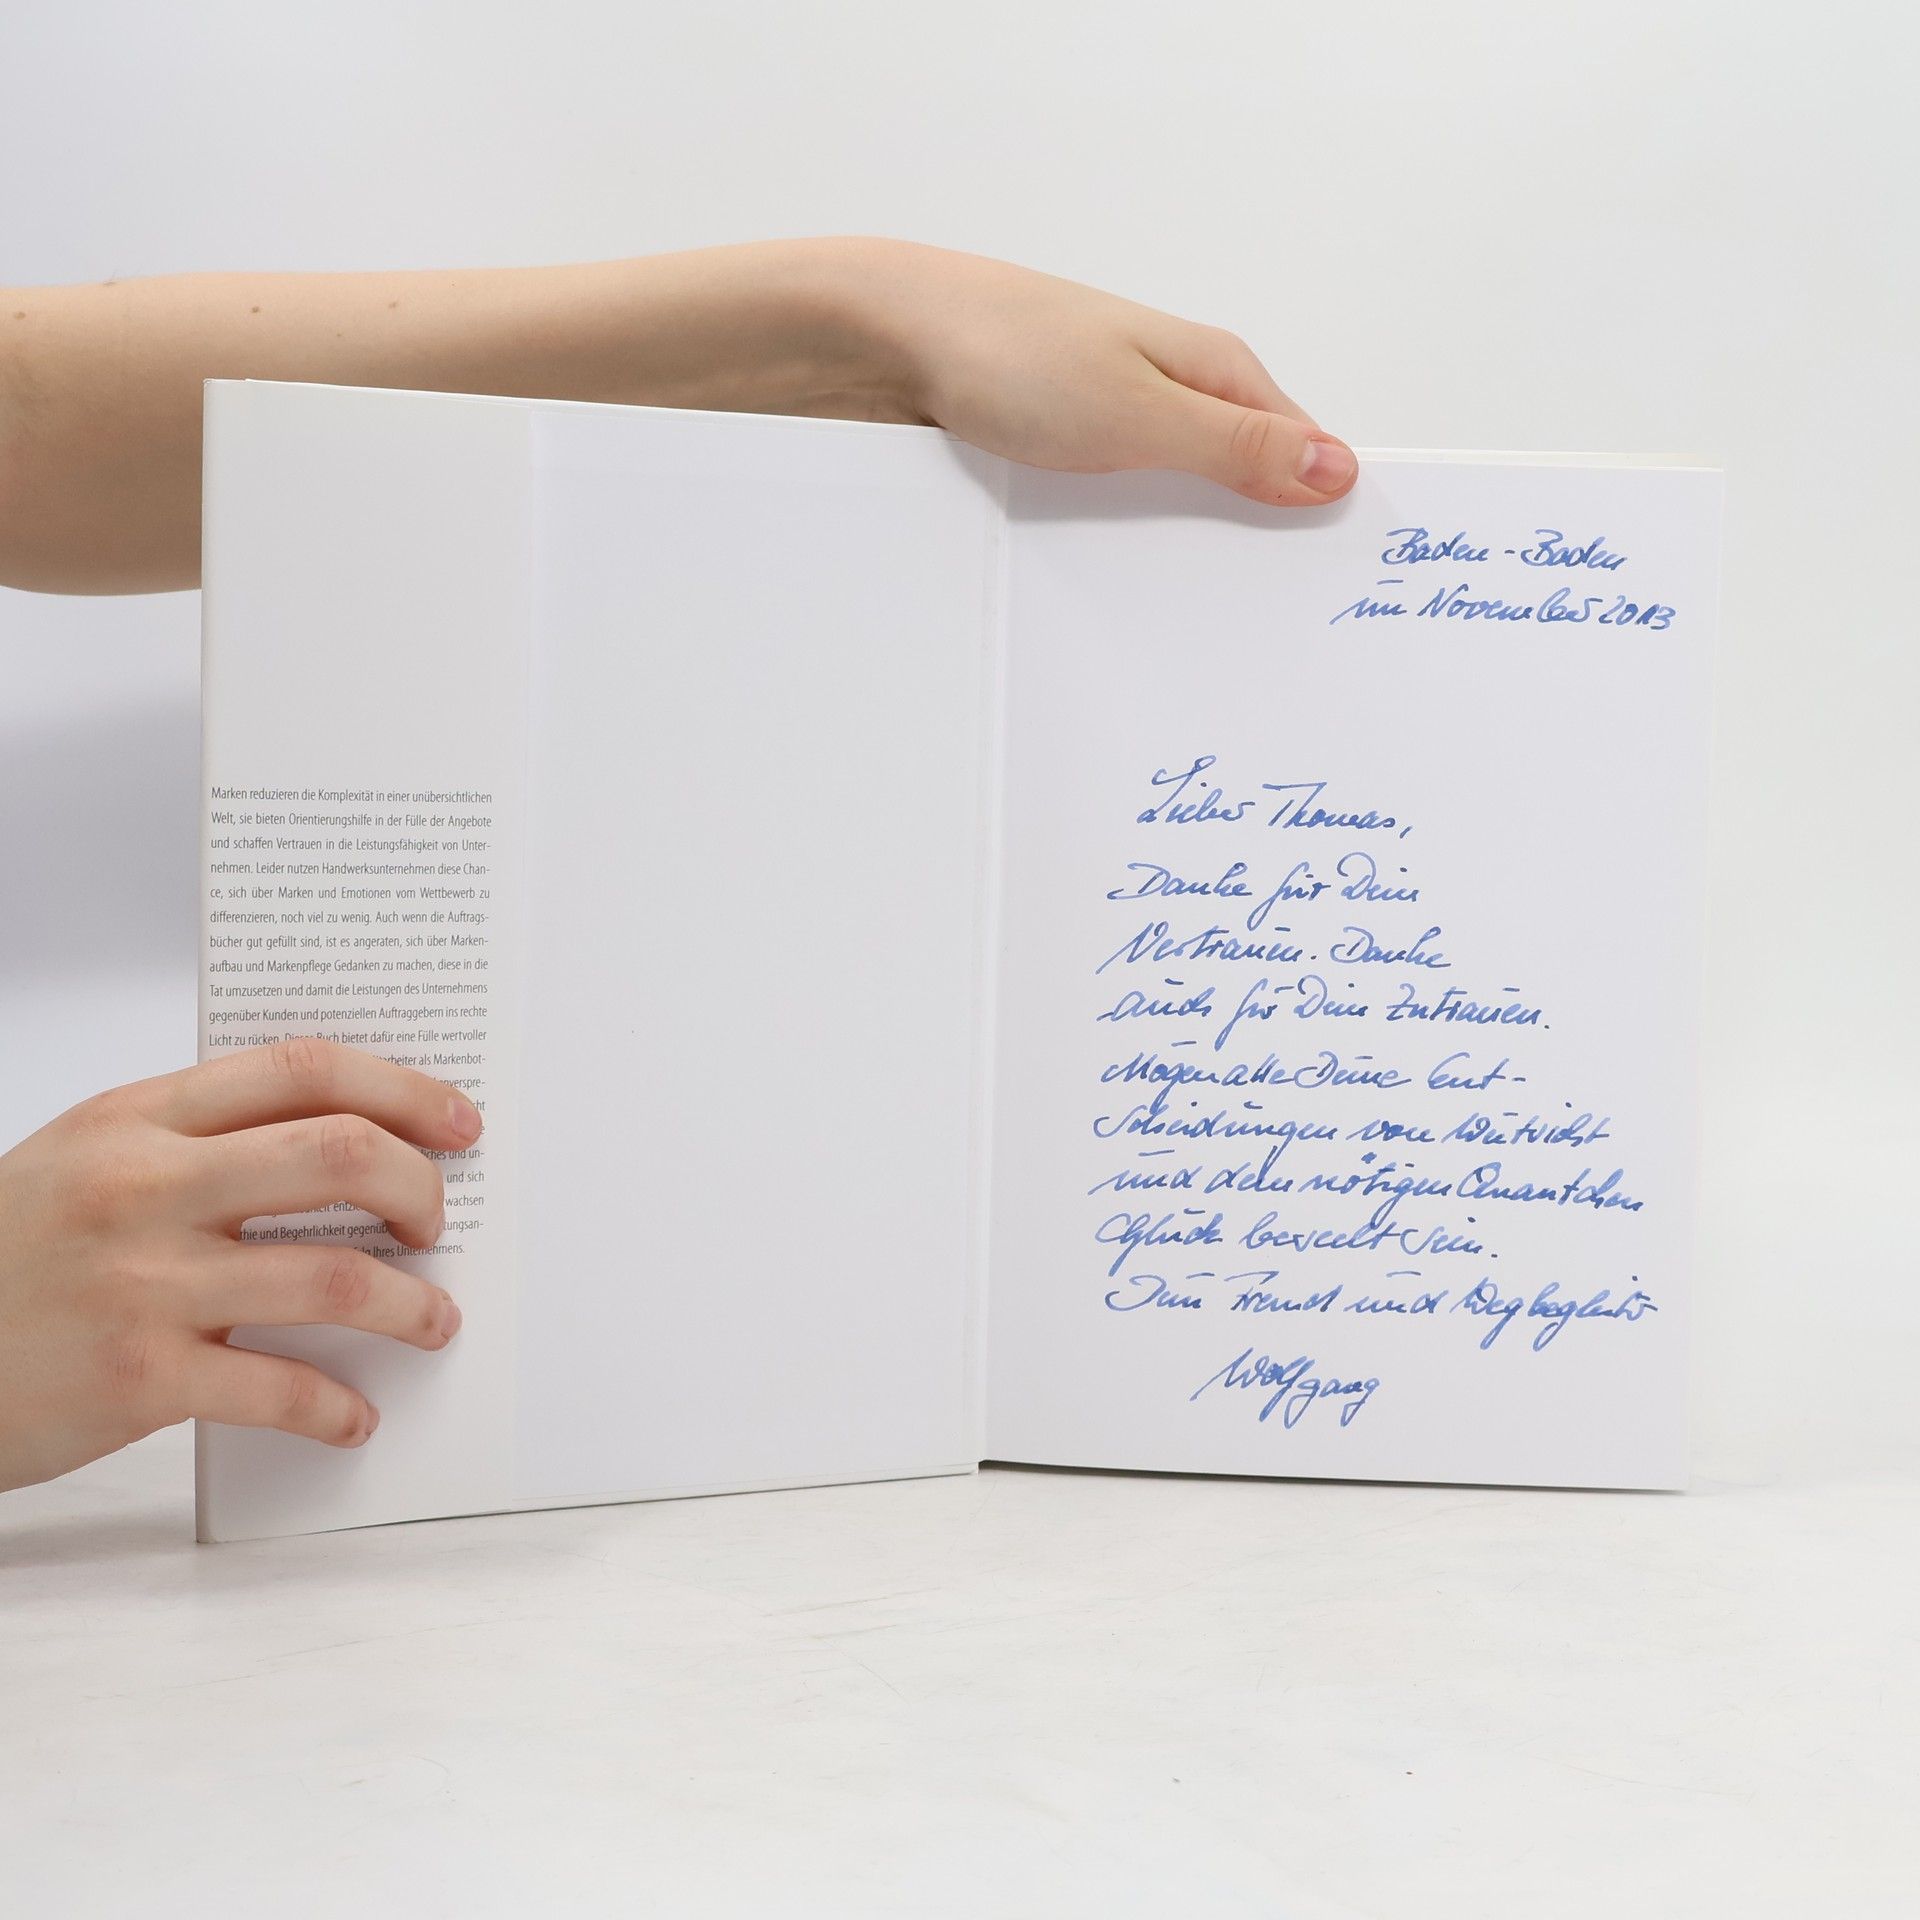 Marken reduzieren die Komplexität in einer unübersichtlichen
Welt, sie bieten Orientierungshilfe in der Fülle der Angebote
und schaffen Vertrauen in die Leistungsfähigkeit von Unter-
nehmen. Leider nutzen Handwerksunternehmen diese Chan-
ce, sich über Marken und Emotionen vom Wettbewerb zu
differenzieren, noch viel zu wenig. Auch wenn die Auftrags-
bücher gut gefüllt sind, ist es angeraten, sich über Marken-
aufbau und Markenpflege Gedanken zu machen, diese in die
Tat umzusetzen und damit die Leistungen des Unternehmens
gegenüber Kunden und potenziellen Auftraggebern ins rechte
Licht zu rücken. Dieses Buch bietet dafür eine Fülle wertvoller
als Markenbot-
und un-
und sich
wachsen
und Begehrlichkeit
Ihres Unternehmens.
Baden-Baden
im November 2013
Lieber Thomas,
Danke für Dein
Vertrauen. Danke
auch für Dein Zutrauen.
Mögen alle Deine Ent-
scheidungen von
und dem nötigen Quantchen
Glück beseelt sein.
Dein Freund und Wegbegleiter
Wolfgang